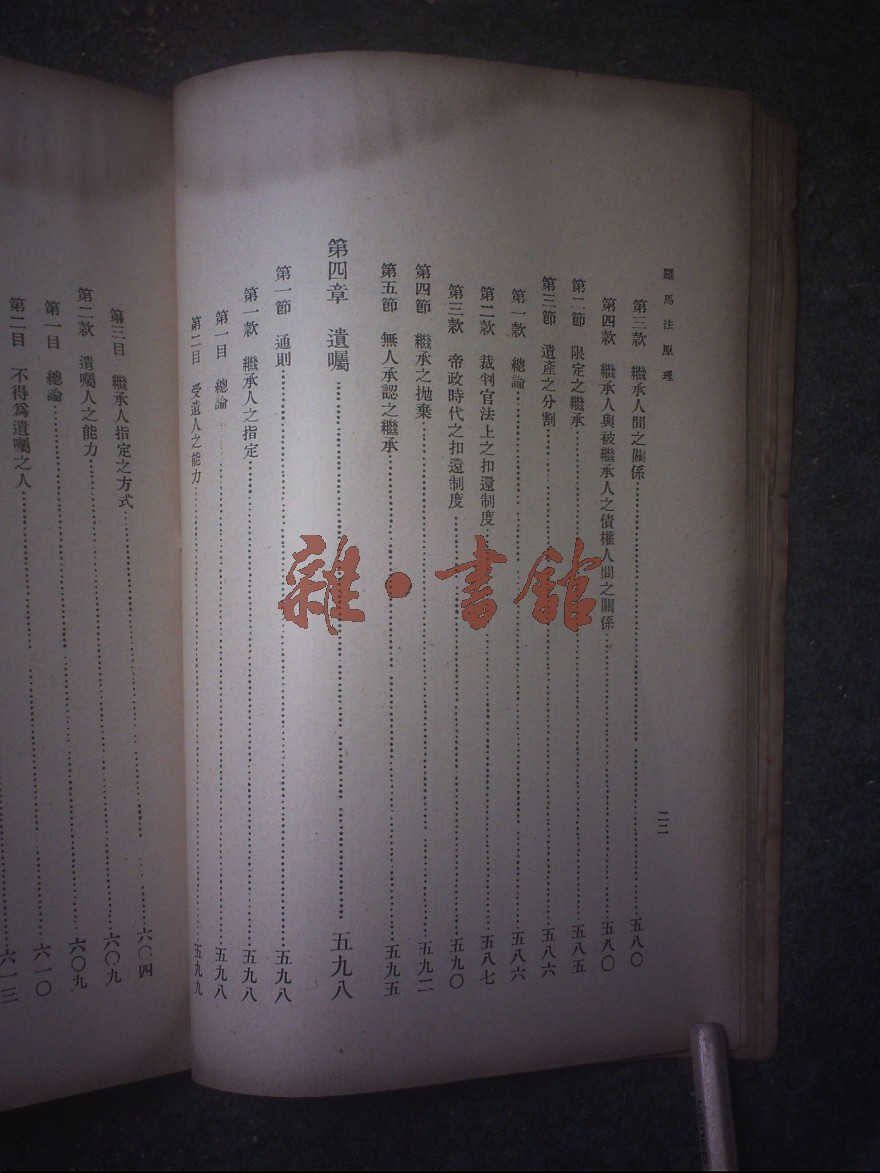 羅馬法原理
二二
第三款 繼承人間之關係……五八〇
第四款 繼承人與被繼承人之債權人間之關係……五八〇
第二節 限定之繼承……五八五
第三節 遺產之分割……五八六
第一款 總論……五八六
第二款 裁判官法上之扣還制度……五八七
第三款 帝政時代之扣還制度……五九〇
第四節 繼承之拋棄……五九二
第五節 無人承認之繼承……五九五
第四章 遺囑……五九八
第一節 通則……五九八
第一款 繼承人之指定……五九八
第一目 總論……五九八
第二目 受遺人之能力……五九九
第三目 繼承人指定之方式……六〇四
第二款 遺囑人之能力……六〇九
第一目 總論……六一〇
第二目 不得爲遺囑之人……六一三
雜·書館